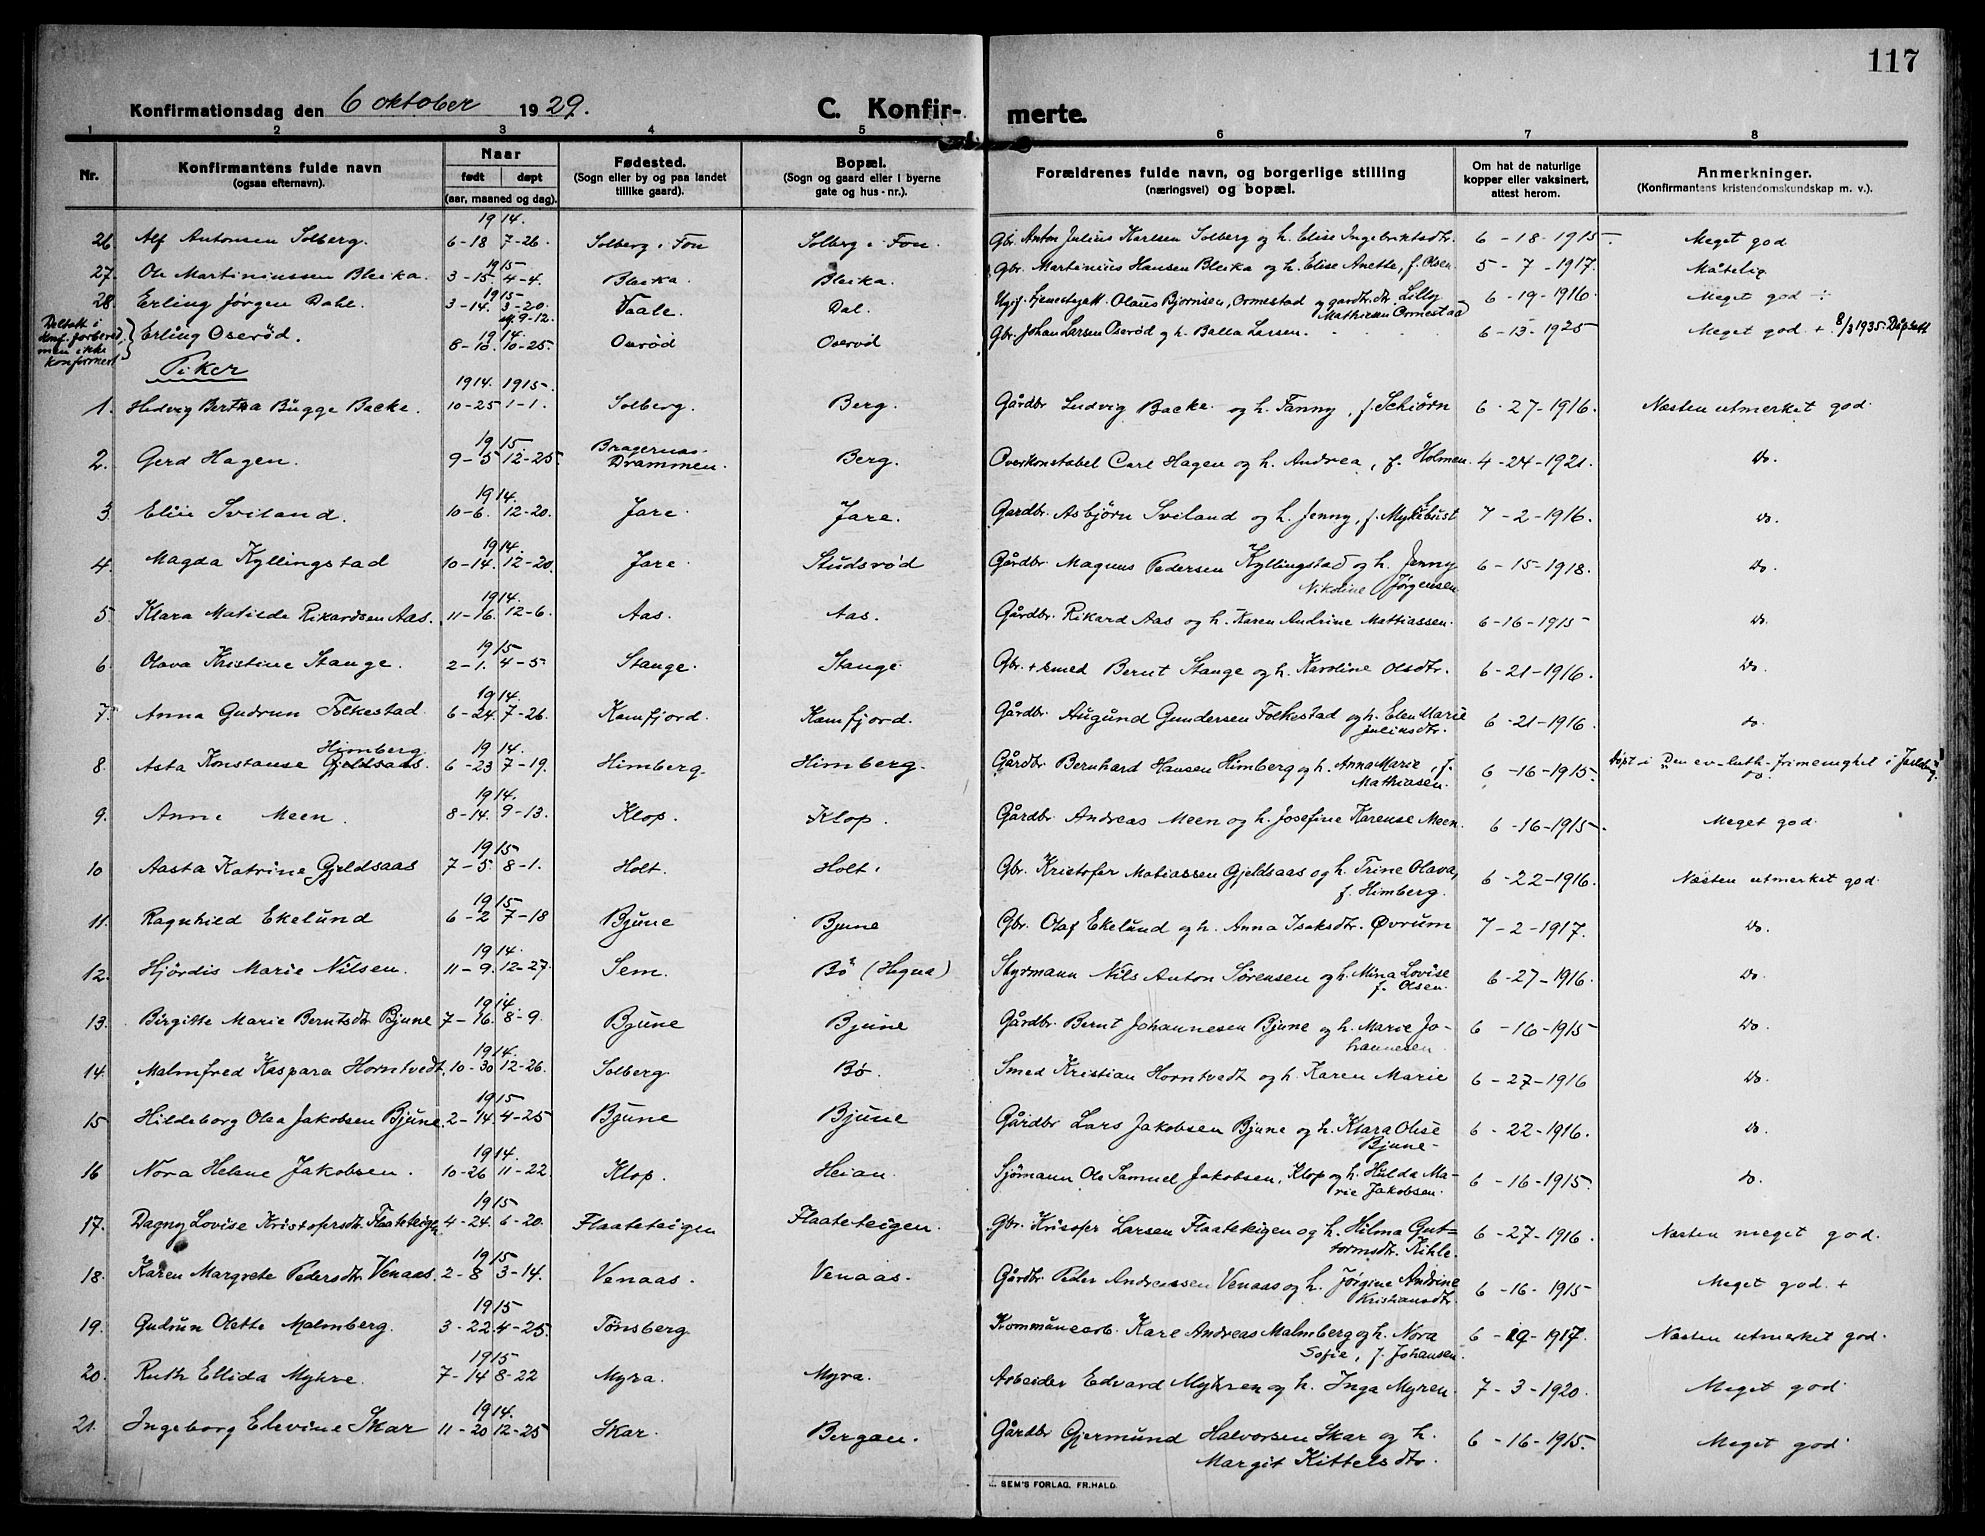 117
Konfirmationsdag den 6 oktober 1929. C. Konfir- merte.
1 2 3 4 5 6 7 8
Nr. Konfirmantens fulde navn (ogsaa efternavn). Naar født døpt (aar, maaned og dag). Fødested. (Sogn eller by og paa landet tillike gaard). Bopæl. (Sogn og gaard eller i byerne gate og hus-nr.). Forældrenes fulde navn, og borgerlige stilling (næringsvei) og bopæl. Om hat de naturlige kopper eller vaksinert, attest herom. Anmerkninger. (Konfirmantens kristendomskundskap m. v.).
1914.
26. Alf Antonsen Solberg. 6-18 7-26. Solberg i Fon Solberg i Fon. Gbr. Anton Julius Karlsen Solberg og h. Elise Ingebriktsdtr. 6-18-1915. Meget god
1915
27. Ole Martiniussen Bleika. 3-15. 4-4. Bleika. Bleika. Gbr. Martinius Hansen Bleika og h. Elise Anette, f. Olsen 5-7-1917. Måtelig
1915
28. Erling Jørgen Dahl. 3-14. 3-20. st. 9-12. Vaale. Dal. Ugif. tjenestegutt Olaus Bjørnsen, Ormestad og gardtr. dtr. Lilly Mathisen Ormestad 6-19-1916. Meget god ÷
Deltatt i konf.forbered. men ikke konfirmert
1914
Erling Oserød. 8-10. 10-25. Oserød Oserød Gbr. Johan Larsen Oserød og h. Balla Larsen. 6-13-1925 Meget god + 8/3 1935 Dåpsatt
Piker
1914. 1915.
1. Hedvig Bertha Bugge Backe. 10-25 1-1. Solberg. Berg. Gårdbr Ludvig Backe og h. Fanny, f. Schiørn 6-27-1916. Næsten utmerket god.
1915.
2. Gerd Hagen. 9-5 12-25. Bragernas. Drammen. Berg. Overkonstabel Carl Hagen og h. Andrea, f. Holmen. 4-24-1921. Do.
1914.
3. Elise Sviland. 10-6. 12-20. Jare. Jare. Gardbr. Asbjørn Sviland og h. Jenny, f. Myklebust 7-2-1916. Do.
1914.
4. Magda Kyllingstad 10-14. 12-20. Jare. Studsrød Gårdbr. Magnus Pedersen Kyllingstad og h. Jenny Nikoline Jørgensen. 6-15-1918. Do.
1914.
5. Klara Matilde Rikardsen Aas. 11-16. 12-6. Aas. Aas. Gårdbr. Rikard Aas og h. Karen Andrine Mattiassen. 6-16-1915 Do.
1915
6. Olava Kristine Stange. 2-1. 4-5 Stange. Stange. Gbr. + smed Bernt Stange og h. Karoline Olsdtr. 6-21-1916. Do.
1914.
7. Anna Gudrun Folkestad. 6-24. 7-26. Kamfjord. Kamfjord. Gårdbr. Augund Gundersen Folkestad og h. Elen Marie Juliusdtr. 6-21-1916. Do.
1914.
8. Asta Konstanse Himberg Gjeldsaas. 6-23 7-19. Himberg. Himberg. Gårdbr Bernhard Hansen Himberg og h. Anna Marie, f. Mathiasen. 6-16-1915. døpt i Den ev-luth-frimenighet i Jarlsberg. Do.
1914.
9. Anne Meen. 8-14. 9-13. Klop. Klop. Gårdbr Andreas Meen og h. Josefine Karense Meen. 6-16-1915. Meget god.
1915
10 Aasta Katrine Gjeldsaas 7-5. 8-1. Holt. Holt. Gbr. Kristofer Matiassen Gjeldsaas og h. Trine Olava, f. Himberg. 6-22-1916. Næsten utmerket god.
1915
11. Ragnhild Ekelund 6-2 7-18 Bjune Bjune Gbr. Olaf Ekelund og h. Anna Isaksdtr. Øvrum 7-2-1917. Do.
1914.
12. Hjørdis Marie Nilsen. 11-9. 12-27. Sem. Bø (Hegna) Styrmann Nils Anton Sørensen og h. Mina Lovise f. Olsen. 6-27-1916. Do.
1914.
13. Birgitte Marie Berntsdtr Bjune 7-16. 8-9. Bjune Bjune Gårdbr. Bernt Johannesen Bjune og h. Marie Johannesen. 6-16-1915 Do.
1914.
14. Malmfred Kaspara Horntvedt. 10-30 12-26. Solberg Bø. Smed Kristian Horntvedt og h. Karen Marie 6-27-1916 Do.
1915
15 Hildeborg Olea Jakobsen Bjune. 2-14. 4-25 Bjune Bjune Gårdbr Lars Jakobsen Bjune og h. Klara Olise Bjune- 6-22-1916. Do.
1914.
16 Nora Helene Jakobsen. 10-26 11-22. Klop. Heian. Sjømann Ole Samuel Jakobsen, Klop og h. Hulda Marie Jakobsen. 6-16-1915. Do.
1915
17. Dagny Lovise Kristofersdtr. Flaateteigen 4-24. 6-20. Flaateteigen Flaateteigen. Gbr. Krisofer Larsen Flaateteigen og h. Hilma Guttormsdtr. Kihle. 6-27-1916. Næsten meget god.
1915
18. Karen Margrete Pedersdtr. Venaas. 2-8 3-14. Venaas. Venaas. Gårdbr Peder Andreassen Venaas og h. Jørgine Andrine Kristiansdtr. 6-16-1915 Meget god. +
1915
19. Gudrun Olette Malmberg. 3-22. 4-25. Tønsberg. Kommunearb. Kare Andreas Malmberg og h. Nora Sofie, f. Johansen. 6-19-1917. Næsten utmerket god.
1915
20. Ruth Ellida Myhre. 7-14 8-22 Myra. Myra. Arbeider Edvard Myhren og h. Inga Myren. 7-3-1920. Meget god.
1914.
21. Ingeborg Elevine Skar 11-20 12-25 Skar. Bergan. Gårdbr Gjermund Halvorsen Skar og h. Margit Kittelsdtr. 6-16-1915. Meget god.
SEM'S FORLAG, FR.HALD.